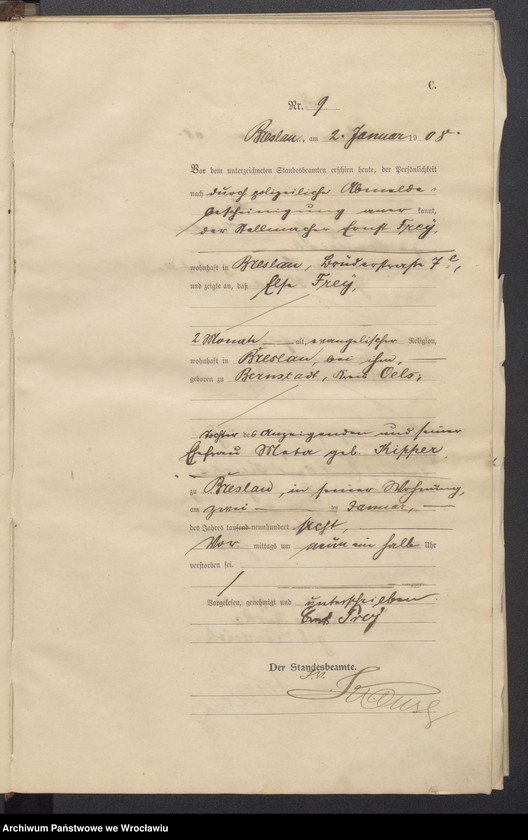 C.
Nr. 9.
Breslau, am 2. Januar 1908.
Vor dem unterzeichneten Standesbeamten erschien heute, der Persönlichkeit
nach durch polizeiliche Abmelde-
bescheinigung aner kannt,
der Stellmacher Ernst Frey,
wohnhaft in Breslau, Brüderstraße 7
und zeigte an, daß Else Frey,
2 Monate alt, evangelischer Religion,
wohnhaft in Breslau, bei ihm,
geboren zu Bernstadt, Kreis Oels,
Tochter des Anzeigenden und seiner
Ehefrau Meta geb. Kipper
zu Breslau, in seiner Wohnung,
am zwei ten Januar,
des Jahres tausend neunhundert acht,
Vor mittags um neun ein halb Uhr
verstorben sei.
Vorgelesen, genehmigt und unterschrieben.
Ernst Frey
Der Standesbeamte.
I.V.
Archiwum Państwowe we Wrocławiu